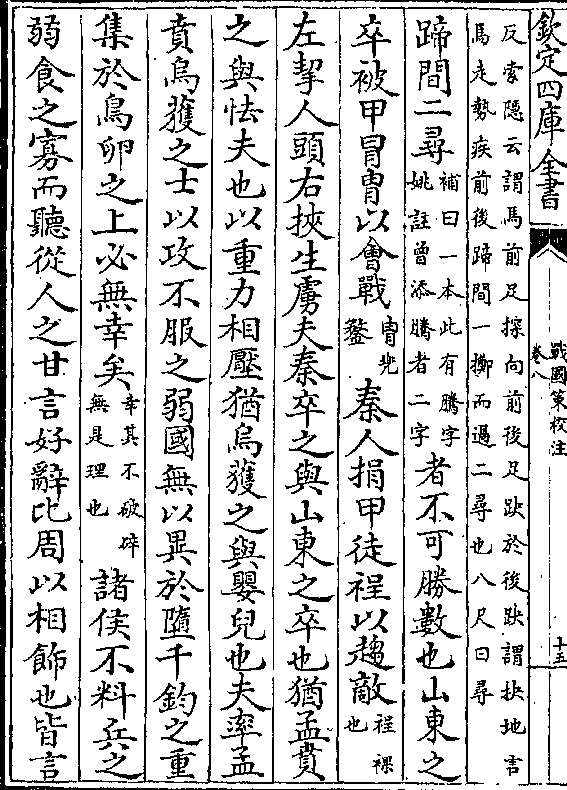 欽定四庫全書
戰國策校注
卷八
十五
反索隱云謂馬前足探向前後足趹於後趹謂抉地言
馬走勢疾前後蹄間一擲而過二尋也八尺曰尋
蹄間二尋補曰一本此有騰字姚註曾添騰者二字者不可勝數也山東之
卒被甲冒胄以會戰胄兠鍪秦人捐甲徒裎以趨敵裎裸也
左挈人頭右挾生虜夫秦卒之與山東之卒也猶孟賁
之與怯夫也以重力相壓猶烏獲之與嬰兒也夫率孟
賁烏獲之士以攻不服之弱國無以異於墮千鈞之重
集於鳥卵之上必無幸矣幸其不破碎無是理也諸侯不料兵之
弱食之寡而聽從人之甘言好辭比周以相飾也皆言